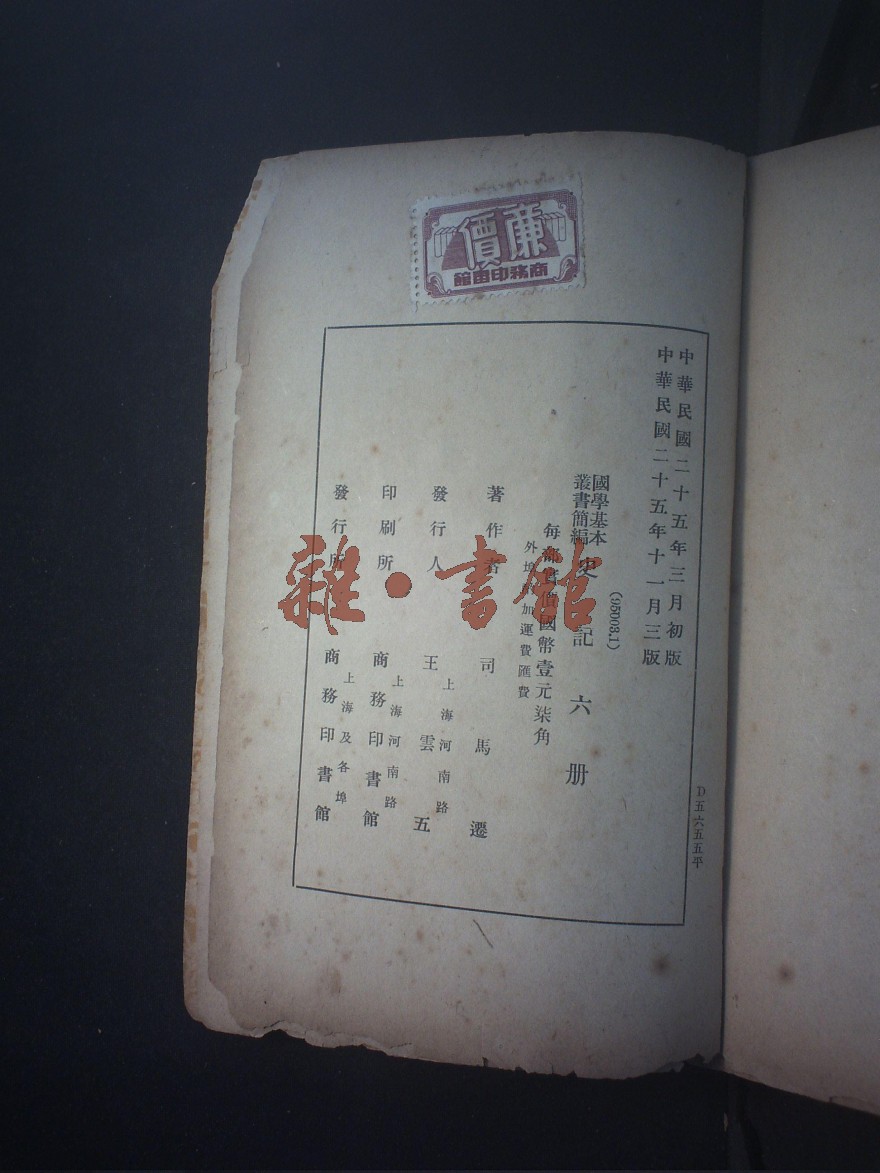 廉價
商務印書館
中華民國二十五年三月初版
中華民國二十五年十一月三版
(95003.1)
國學基本
叢書簡編
史記 六册
每部實價國幣壹元柒角
外埠酌加運費匯費
著作者 司馬遷
發行人 王雲五
上海河南路
印刷所 商務印書館
上海河南路
發行所 商務印書館
上海及各埠
D五六五五平
雜·書館